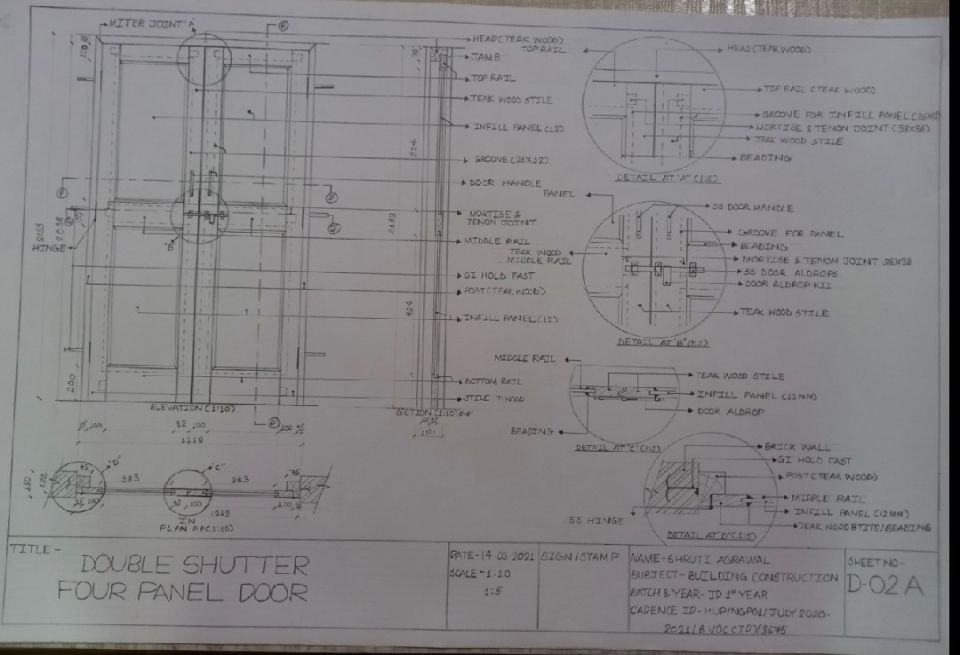 MITER JOINT "A"
HINGE
2183
2098
200
ELEVATION (1:10)
82 100
1218
HEAD (TEAK WOOD)
JAMB
TOP RAIL
TEAK WOOD STILE
INFILL PANEL (12)
GROOVE (25X12)
DOOR HANDLE
MORTISE &
TENON JOINT
MIDDLE RAIL
GI HOLD FAST
POST (TEAK WOOD)
INFILL PANEL (12)
BOTTOM RAIL
STILE T.WOOD
824
2133
824
SECTION (1:10)
TOP RAIL
HEAD (TEAK WOOD)
TOP RAIL (TEAK WOOD)
GROOVE FOR INFILL PANEL
MORTISE & TENON JOINT (38X38)
TEAK WOOD STILE
BEADING
DETAIL AT "A" (1:5)
PANEL
SS DOOR HANDLE
GROOVE FOR PANEL
BEADING
TEAK WOOD
MIDDLE RAIL
MORTISE & TENON JOINT 38X38
SS DOOR ALDROPS
DOOR ALDROP
TEAK WOOD STILE
DETAIL AT "B" (1:5)
MIDDLE RAIL
TEAK WOOD STILE
INFILL PANEL (12 MM)
DOOR ALDROP
BEADING
DETAIL AT "C" (1:5)
BRICK WALL
GI HOLD FAST
POST (TEAK WOOD)
MIDDLE RAIL
INFILL PANEL (12 MM)
SS HINGE
DETAIL AT "D" (1:5)
"D"
"C"
75
383
383
75
82 100
PLAN
TITLE-
DOUBLE SHUTTER
FOUR PANEL DOOR
DATE-14.03.2021
SCALE-1:10
1:5
SIGN/STAMP
NAME-SHRUTI AGRAWAL
SUBJECT-BUILDING CONSTRUCTION
BATCH & YEAR-ID 1ST YEAR
CADENCE ID-HUP/NGP01/JULY 2020-
SHEET NO-
D-02A